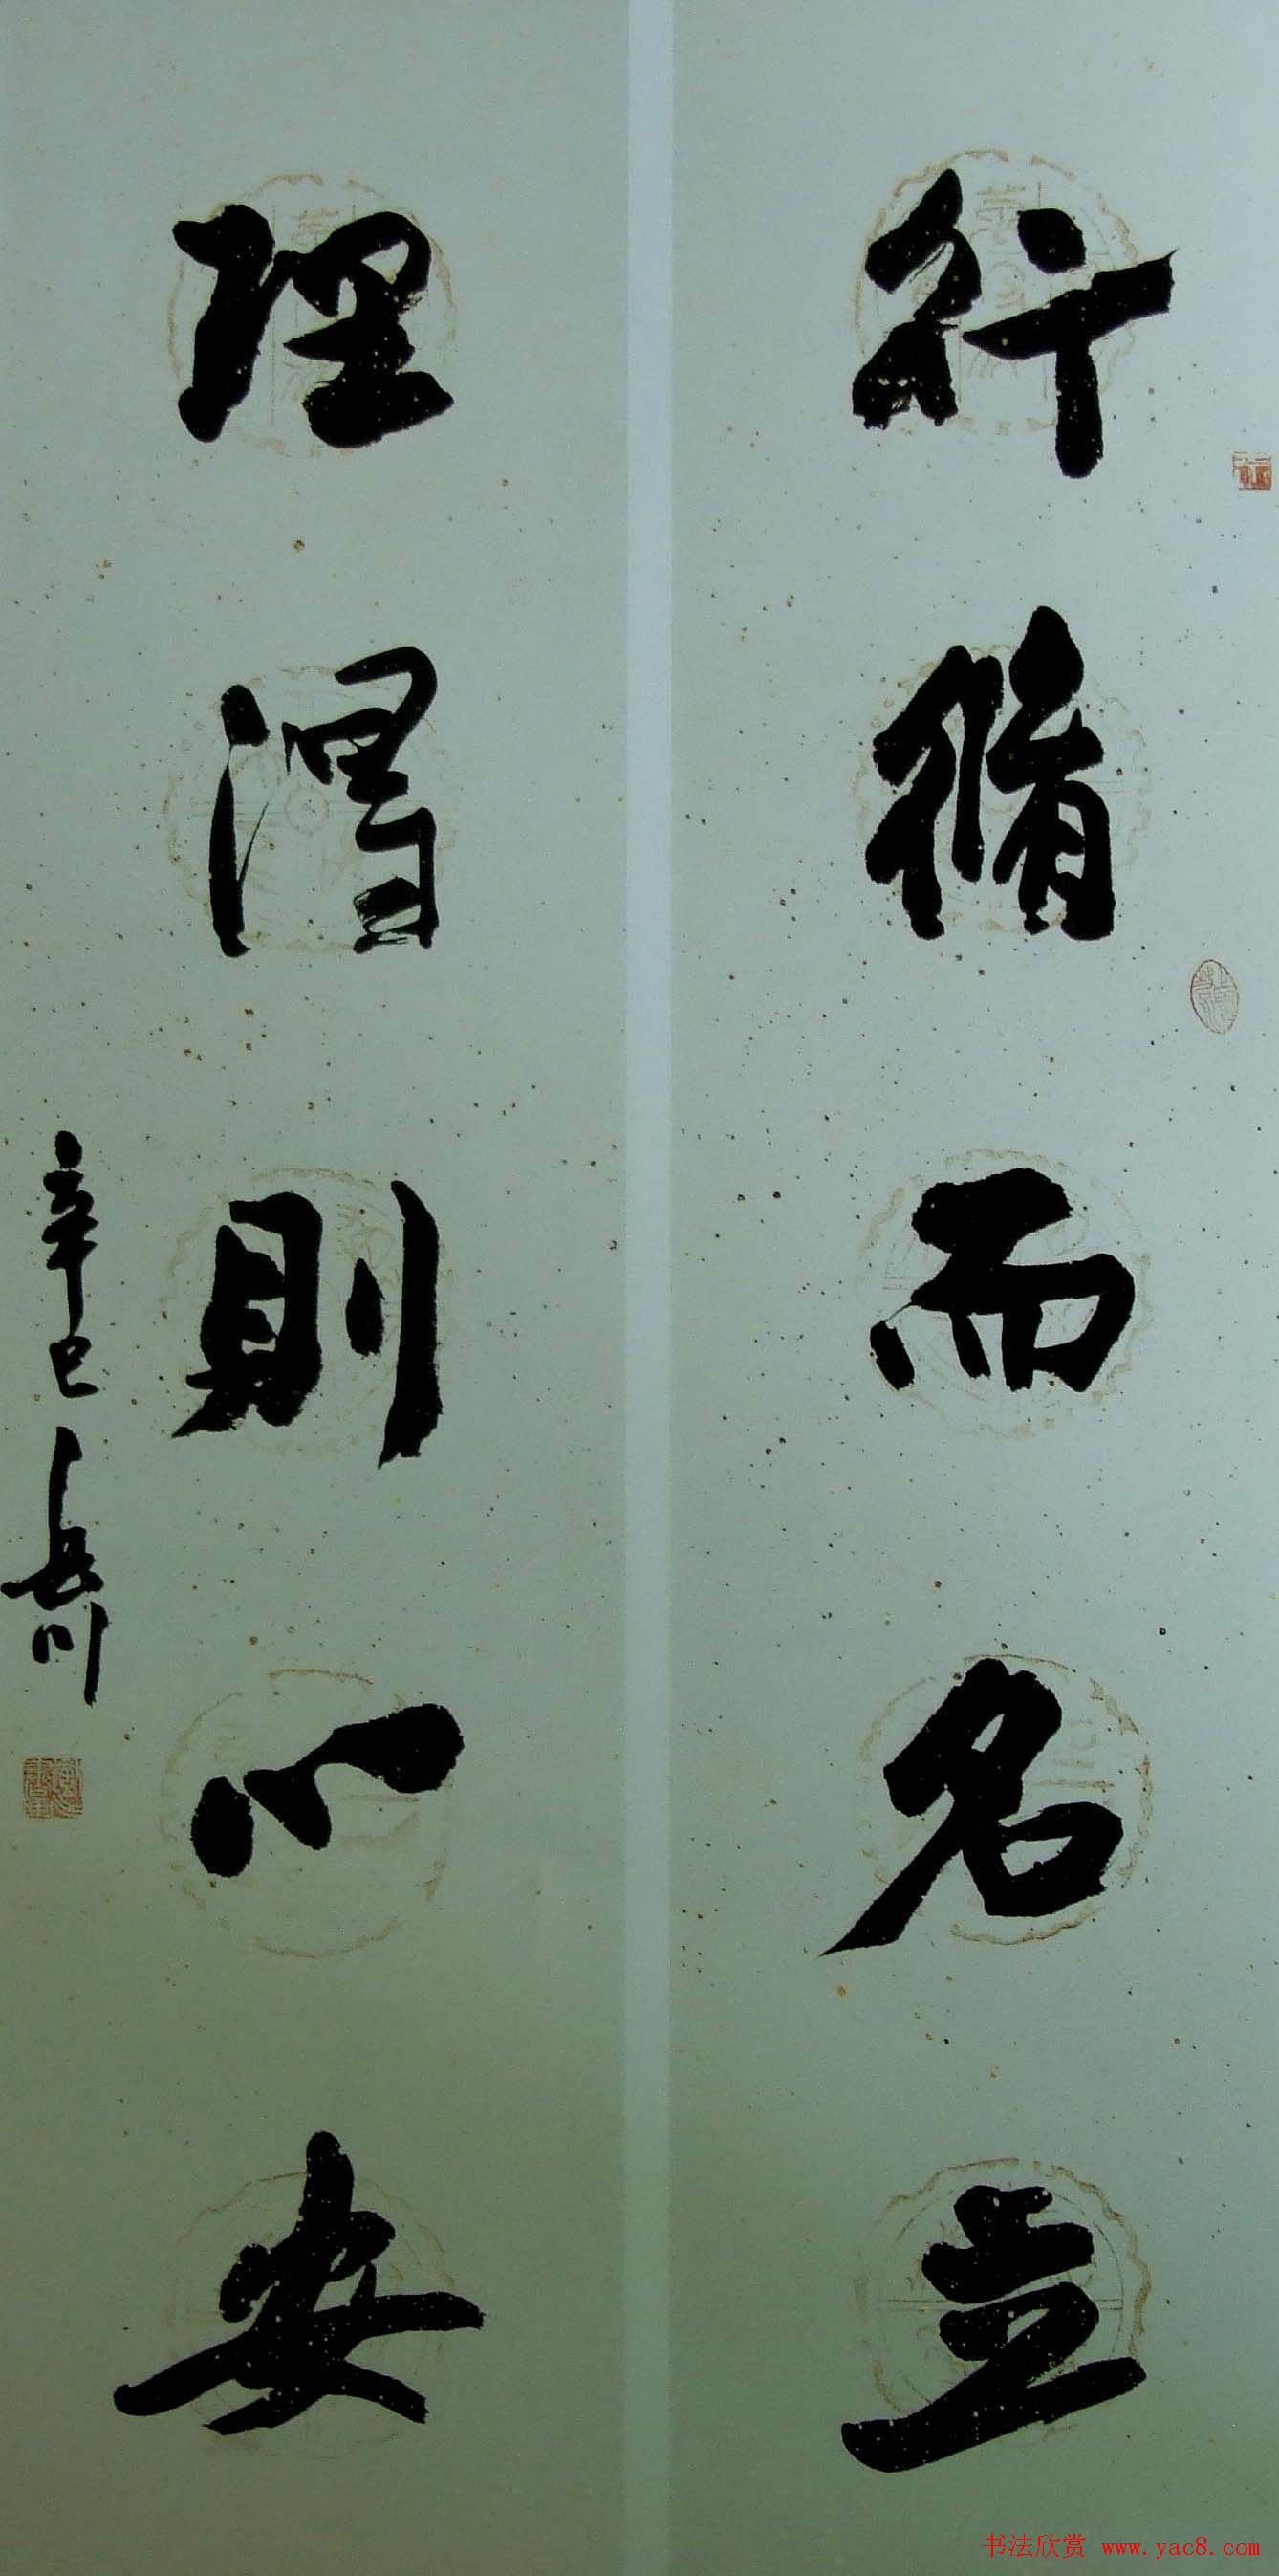 行脩而名立
理得則心安
辛巳岳川
书法欣赏 www.yac8.com